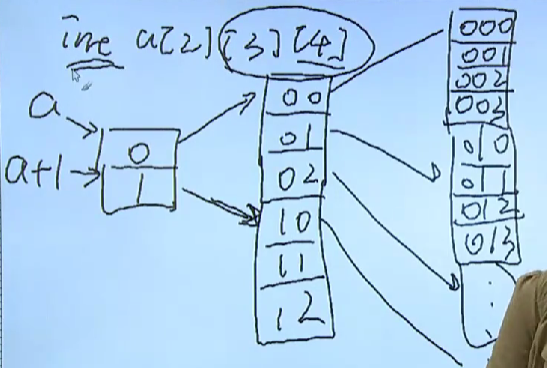 int a[2][3][4]
a
a+1
0
1
00
01
02
10
11
12
000
001
002
003
010
011
012
013